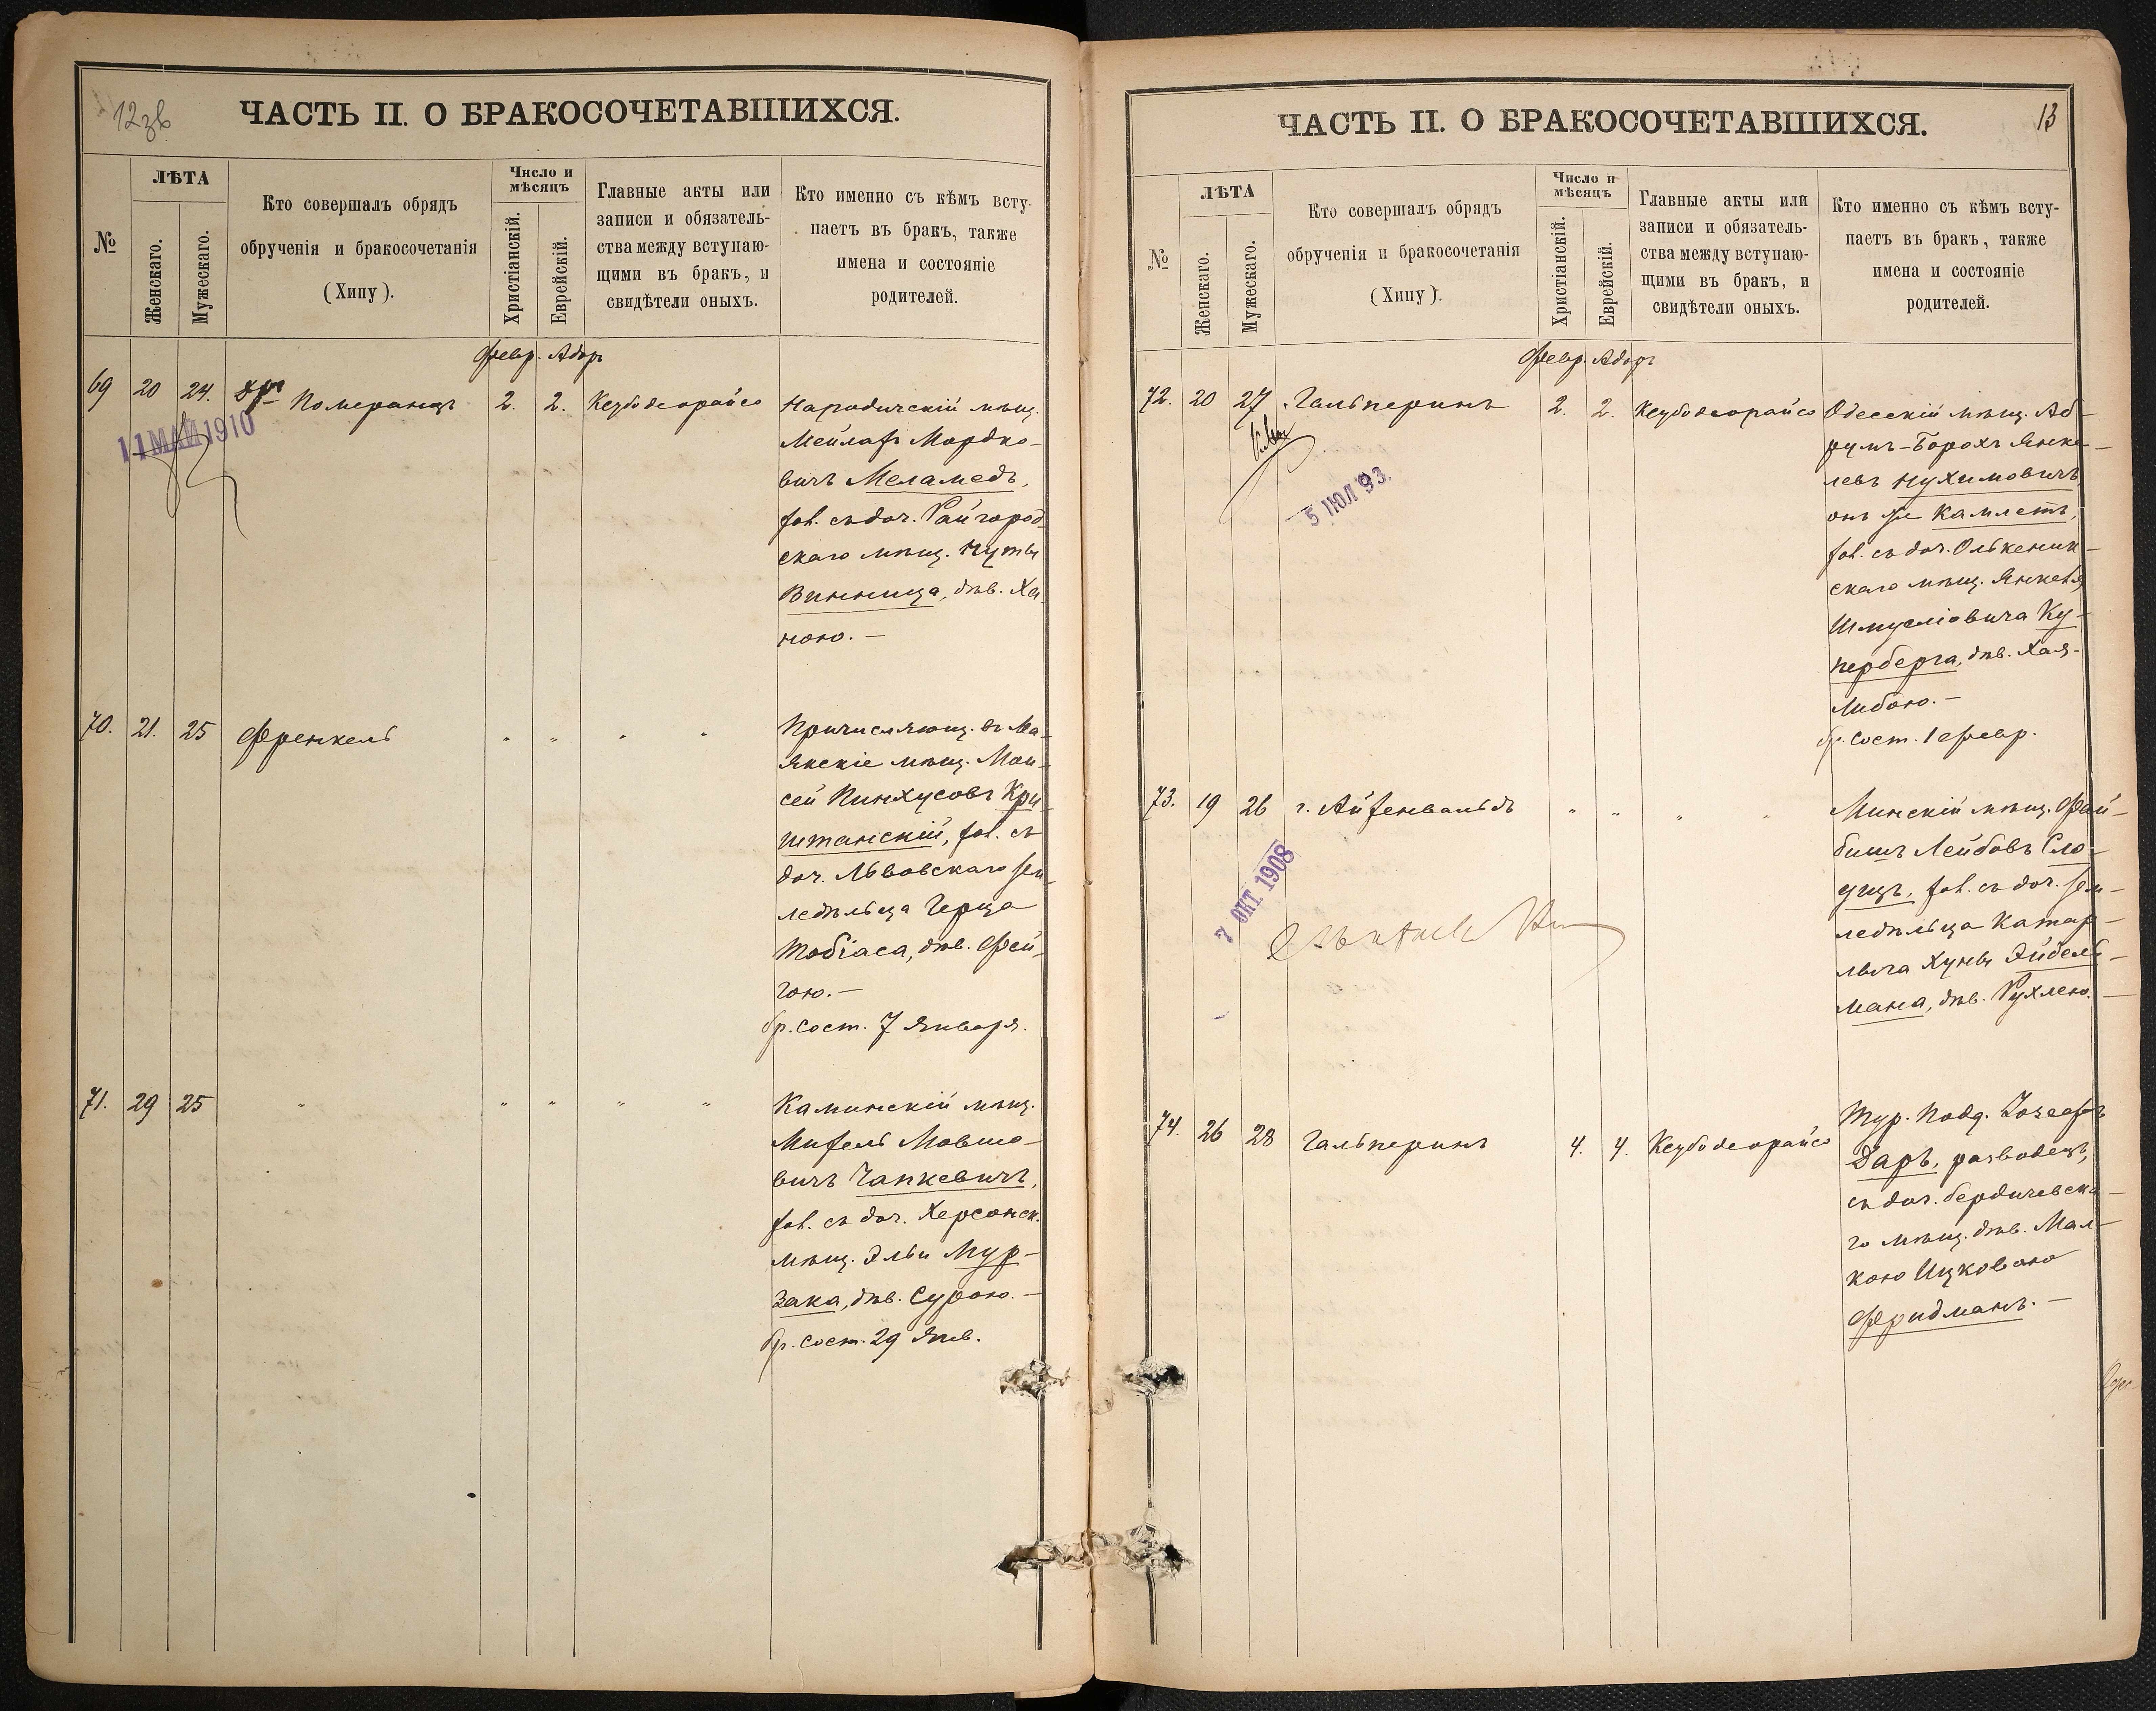 12 зв
ЧАСТЬ II. О БРАКОСОЧЕТАВШИХСЯ.
№
ЛѢТА
Женскаго.
Мужескаго.
Кто совершалъ обрядъ
обрученія и бракосочетанія
(Хипу).
Число и
мѣсяцъ
Христіанскій.
Еврейскій.
Главные акты или
записи и обязатель-
ства между вступаю-
щими въ бракъ, и
свидѣтели оныхъ.
Кто именно съ кѣмъ всту-
паетъ въ бракъ, также
имена и состояніе
родителей.
Февр. Адаръ
69 20 24. Померанцъ 2. 2. Ксубо деорайсо
11 МАЙ 1910
Народичскій мѣщ.
Мейлахъ Мордко-
вичъ Меламедъ,
хол. съ доч. Райгород-
скаго мѣщ. Нуты
Винница, дѣв. Ха-
ною. —
70. 21. 25 Френкель " " " "
Причисляющ. въ Ма-
якскіе мѣщ. Мои-
сей Пинхусовъ Кри-
штанскій, хол. съ
доч. Львовскаго зем-
ледѣльца Герца
Тобіаса, дѣв. Фей-
гою. —
бр. сост. 7 Января.
71. 29 25 " " " " "
Каминскій мѣщ.
Михель Мовшо-
вичъ Чапкевичъ,
хол. съ доч. Херсонск.
мѣщ. Эльи Мур-
зака, дѣв. Сурою. —
бр. сост. 29 Янв.
13
ЧАСТЬ II. О БРАКОСОЧЕТАВШИХСЯ.
№
ЛѢТА
Женскаго.
Мужескаго.
Кто совершалъ обрядъ
обрученія и бракосочетанія
(Хипу).
Число и
мѣсяцъ
Христіанскій.
Еврейскій.
Главные акты или
записи и обязатель-
ства между вступаю-
щими въ бракъ, и
свидѣтели оныхъ.
Кто именно съ кѣмъ всту-
паетъ въ бракъ, также
имена и состояніе
родителей.
Февр. Адаръ
72. 20 27 Гальперинъ 2. 2. Ксубо деорайсо
5 ІЮЛ 93.
Одесскій мѣщ. Аб-
румъ-Борохъ Янке-
левъ Нухимовичъ
онъ же Камлетъ,
хол. съ доч. Олькеник-
скаго мѣщ. Янкеля
Шмуеліовича Ку-
перберга, дѣв. Хая-
Либою. —
бр. сост. 1 Февр.
73. 19 26 г. Айзенвальдъ " " " "
7 ОКТ. 1908
Минскій мѣщ. Фай-
бишъ Лейбовъ Сло-
уцъ, хол. съ доч. зем-
ледѣльца Катар-
лыга Хуны Эйдель-
мана, дѣв. Рухлею. —
74. 26 28 Гальперинъ 4. 4. Ксубо деорайсо
Тур. подд. Іозефъ
Даръ, разводецъ,
съ доч. бердичевска-
го мѣщ. дѣв. Мал-
кою Ицковою
Фридманъ. —